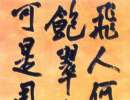 飛人何
飽翠
可是